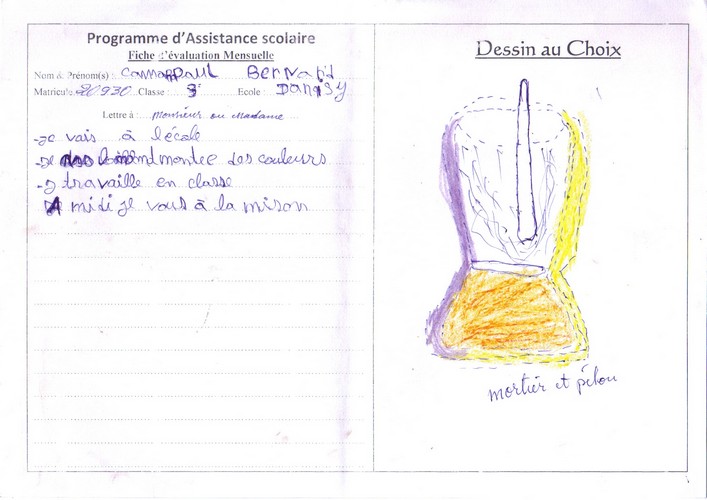 Programme d'Assistance scolaire
Fiche d'évaluation Mensuelle
Nom & Prénom(s) : Bernard
Matricule 20930 Classe : 3e Ecole : Danisy
Lettre à : Monsieur ou Madame
-je vais à lécole
-je montee des couleurs
-j travaille en classe
A midi je vous à la mison
Dessin au Choix
mortier et pélou